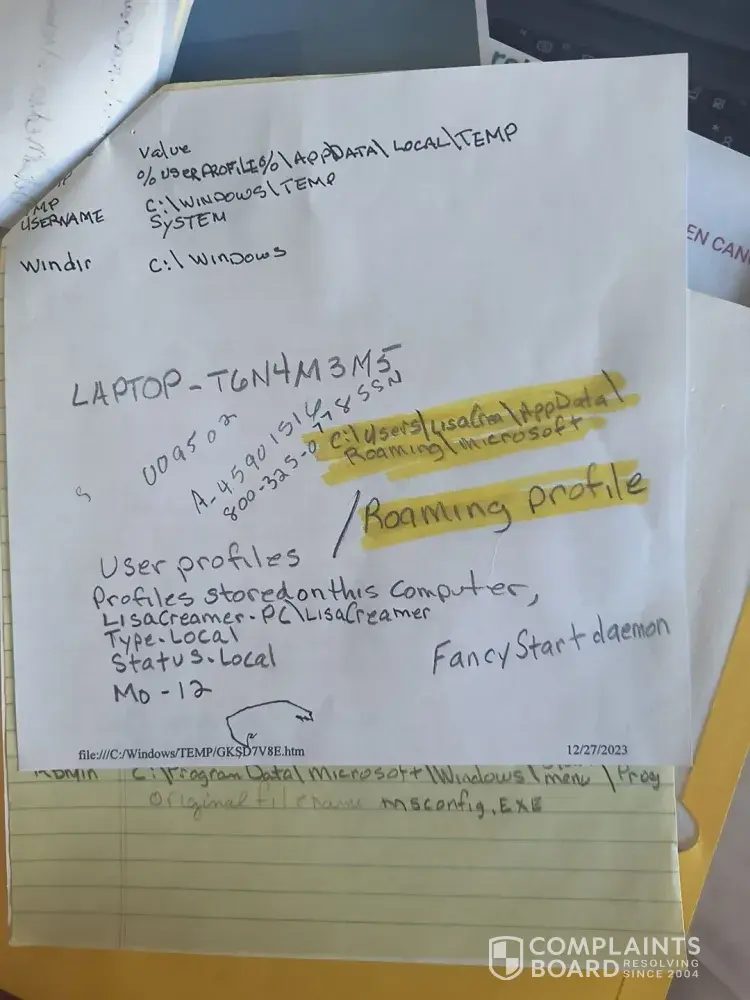 Value
%USERPROFILE%\APPDATA\LOCAL\TEMP
C:\WINDOWS\TEMP
USERNAME SYSTEM
Windir C:\WINDOWS
EN CAN
LAPTOP-T6N4M3M5
U09502
A-45901514
800-325-0778 SSN
C:\Users\LisaCrea\AppData\
Roaming\microsoft
/Roaming profile
User profiles
Profiles stored on this computer,
LisaCreamer.PC\LisaCreamer
Type.Local
Status.Local
FancyStart daemon
Mo-12
file:///C:/Windows/TEMP/GKSD7V8E.htm 12/27/2023
C:\Program Data\microsoft\Windows\ menu \Prog
original filename msconfig.EXE
COMPLAINTS
BOARD RESOLVING
SINCE 2004